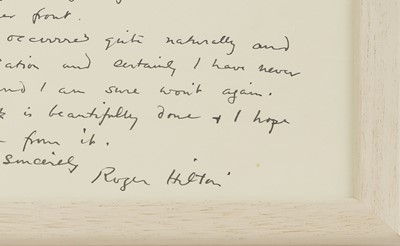 front.
occurred quite naturally and
and certainly I have never
and I am sure won't again.
is beautifully done + I hope
from it.
sincerely
Roger Hilton